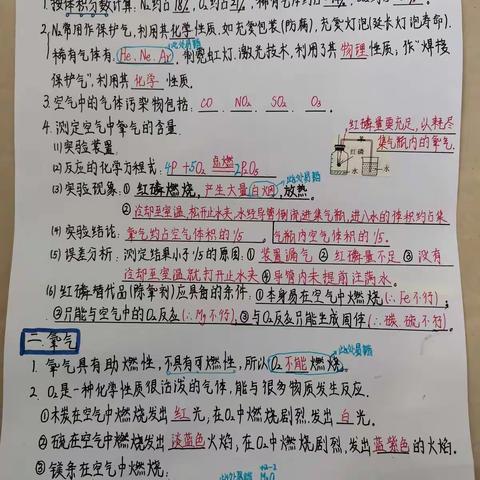 1. 按体积分数计算. N₂约占78%, O₂约占21%
2. N₂常用作保护气, 利用其化学性质. 如充氮包装(防腐), 充氮灯泡(延长灯泡寿命).
此处易错
稀有气体有: He、Ne、Ar). 制霓虹灯. 激光技术, 利用了其物理性质; 作"焊接
保护气", 利用其化学性质.
3. 空气中的气体污染物包括: CO NO₂ SO₂ O₃.
4. 测定空气中氧气的含量.
红磷量要充足, 以耗尽
集气瓶内的氧气.
(1) 实验装置.
红磷
水
水
(2) 反应的化学方程式: 4P+5O₂ 点燃 2P₂O₅
此处易错
(3) 实验现象: ① 红磷燃烧, 产生大量白烟, 放热。
② 冷却至室温, 松开止水夹, 水经导管倒流进集气瓶, 进入水的体积约占集
(4) 实验结论: 氧气约占空气体积的1/5 气瓶内空气体积的1/5.
(5) 误差分析: 测定结果小于1/5的原因: ① 装置漏气 ② 红磷量不足 ③ 没有
冷却至室温就打开止水夹 ④ 导管内未提前注满水。
(6) 红磷替代品(除氧剂)应具备的条件: ① 本身易在空气中燃烧(∴Fe不行);
② 只能与空气中的O₂反应(∴Mg不行); ③ 与O₂反应只能生成固体(∴碳、硫不行).
二. 氧气
此处易错
1. 氧气具有助燃性, 不具有可燃性, 所以O₂不能燃烧。
2. O₂是一种化学性质很活泼的气体, 能与很多物质发生反应.
① 木炭在空气中燃烧发出红光, 在O₂中燃烧剧烈, 发出白光.
② 硫在空气中燃烧发出淡蓝色火焰, 在O₂中燃烧剧烈, 发出蓝紫色的火焰.
③ 镁条在空气中燃烧:
此处易错
+2 -2
MgO